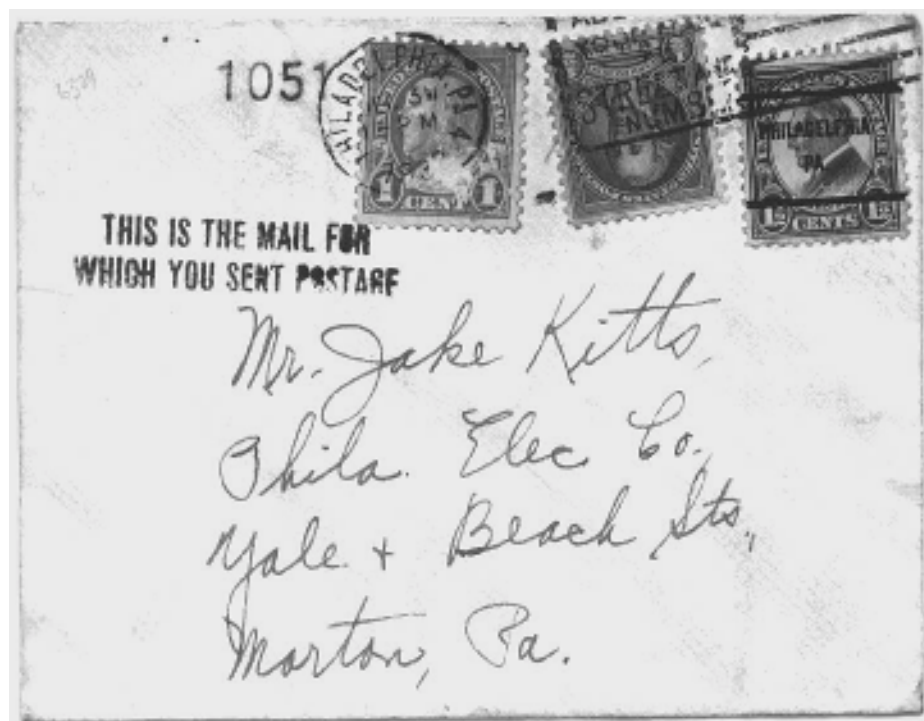 1051
PHILADELPHIA, PA
1 CENT 1
PHILADELPHIA
PA
1½ CENTS 1½
THIS IS THE MAIL FOR
WHICH YOU SENT POSTAGE
Mr. Jake Kitts,
Phila. Elec Co.,
Yale + Beach Sts.,
Morton, Pa.